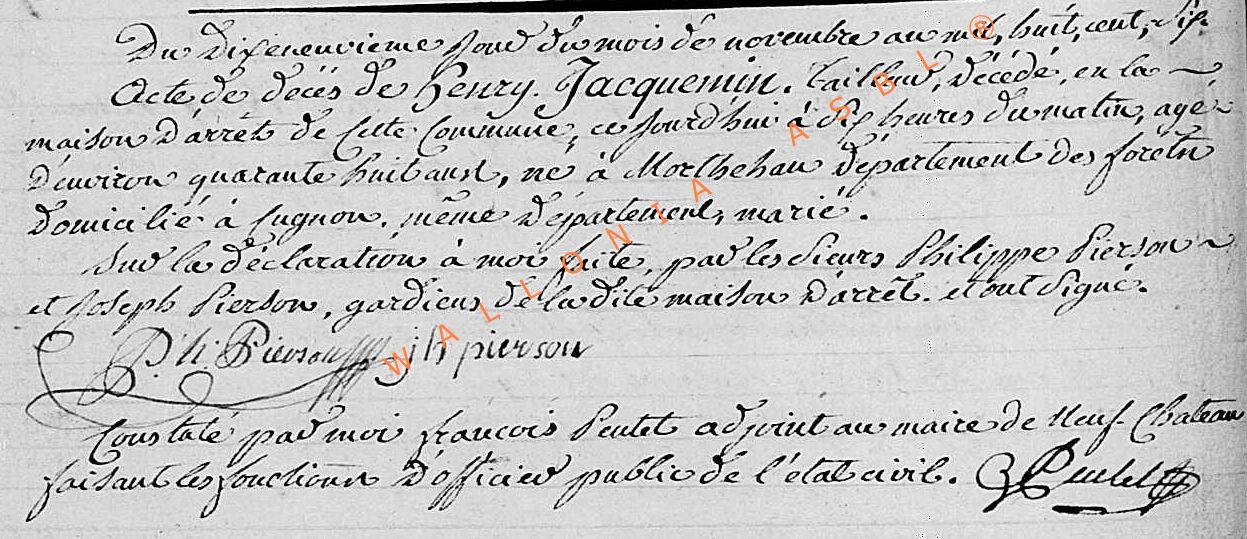 Du dixeneuvieme jour du mois de novembre an mil, huit, cent, dix.
Acte de décès de Henry. Jacquemin. tailleur, décédé, en la ~
maison d'arrêt de cette Commune, ce jourd'hui à dix heures du matin, agé
d'environ quarante huit ans, né à Morthehan département des forêts
domicilié à Cugnon. même département, marié.
Sur la déclaration à moi faite, par les Sieurs Philippe Pierson ~
et Joseph Pierson, gardiens de la dite maison d'arrêt. et ont Signé.
P. h. Pierson jh pierson
Constaté par moi françois Peutet adjoint au maire de Neuf-Chateau
faisant les fonctions d'officier public de l'état civil. Peutet
WALLONIA ASBL ®